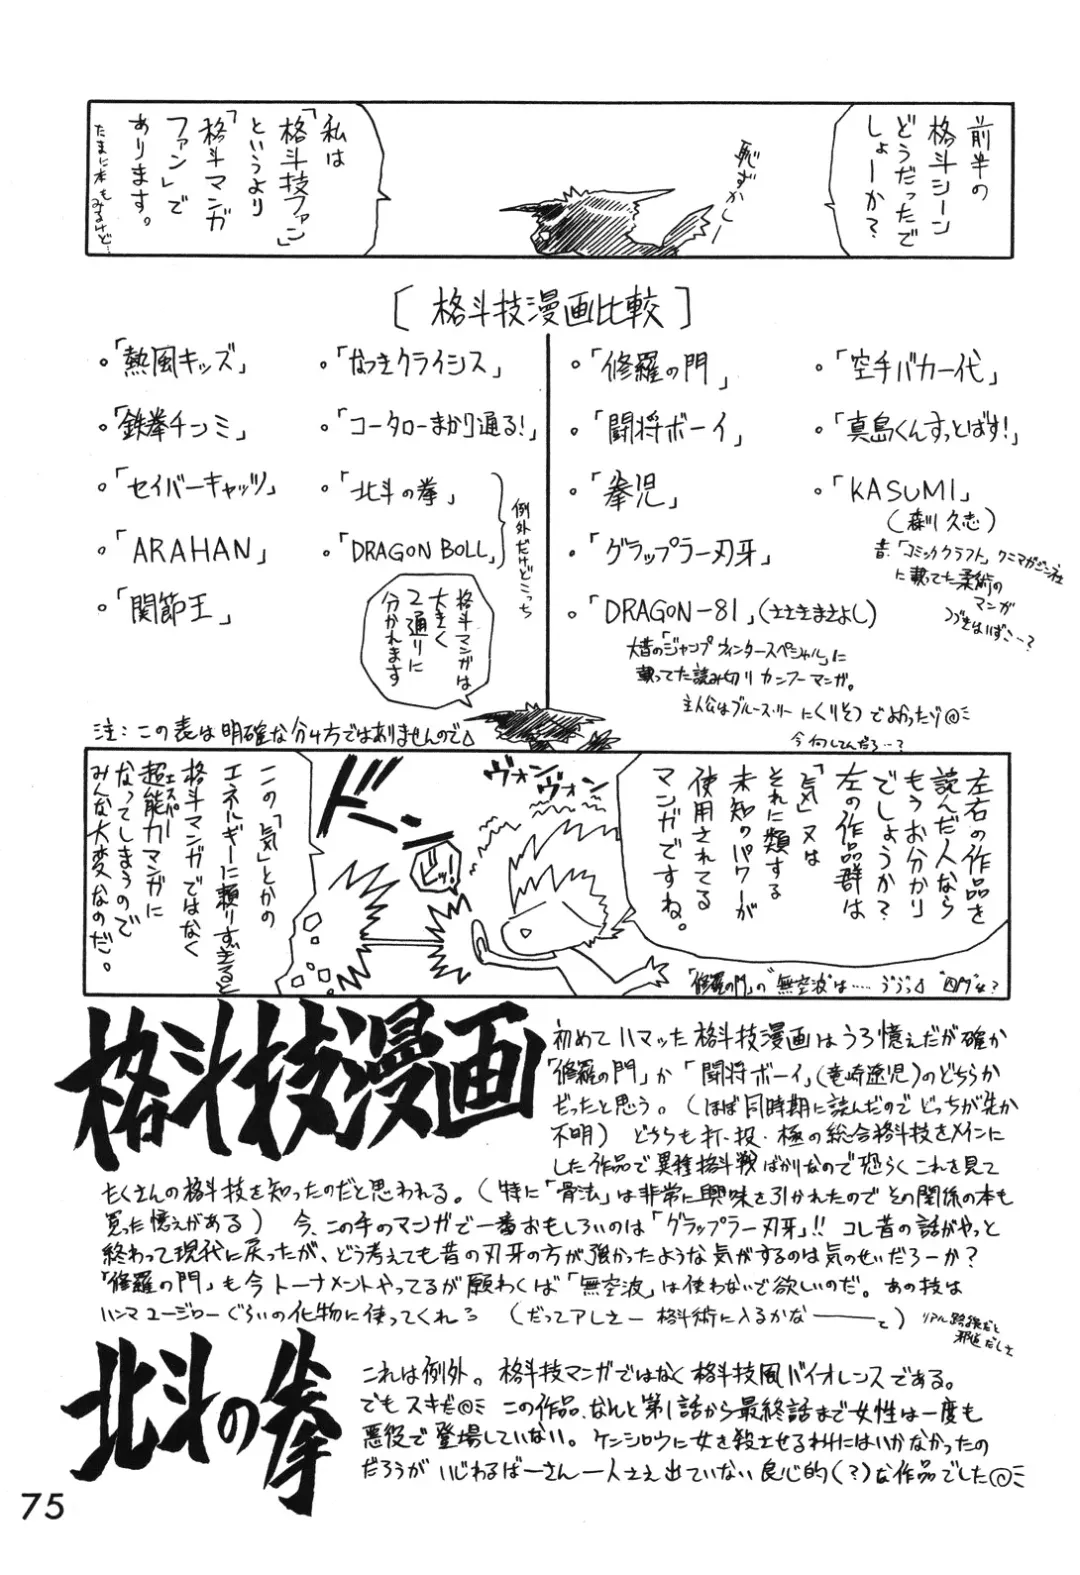 前半の
格斗シーン
どうだったで
しょーか?
恥ずかしー
私は
「格斗技ファン」
というより
「格斗マンガ
ファン」で
あります。
たまに本もみるけど…
[格斗技漫画比較]
。「熱風キッズ」
。「鉄拳チンミ」
。「セイバーキャッツ」
。「ARAHAN」
。「関節王」
。「なつきクライシス」
。「コータローまかり通る!」
。「北斗の拳」
。「DRAGON BOLL」
例外だけどこっち
格斗マンガは
大きく
2通りに
分かれます
。「修羅の門」
。「闘将ボーイ」
。「拳児」
。「グラップラー刃牙」
。「DRAGON-81」(ささきまさよし)
大昔の「ジャンプ ウィンタースペシャル」に
載ってた読み切りカンフーマンガ。
主人公はブルース・リーにくりそつでよかったゾ@ミ
今何してんだろ…?
。「空手バカ一代」
。「真島くんすっとばす!」
。「KASUMI」
(森川久志)
昔、「コミッククラフト」ワニマガジン社
に載ってた柔術の
マンガ
つづきはいずこー?
注:この表は明確な分け方ではありませんので
左右の作品を
読んだ人なら
もうお分かり
でしょうか?
左の作品群は
「気」又は
それに類する
未知のパワーが
使用されてる
マンガですね。
「修羅の門」の"無空波"は……
ヴォン
ヴォン
ドンッ
ビッ!
この「気」とかの
エネルギーに頼りすぎると
格斗マンガではなく
超能力マンガに
エスパー
なってしまうので
みんな大変なのだ。
格斗技漫画
初めてハマッた格斗技漫画はうろ憶えだが確か
「修羅の門」か「闘将ボーイ」(竜崎遼児)のどちらか
だったと思う。(ほぼ同時期に読んだのでどっちが先か
不明) どちらも打・投・極の総合格斗技をメインに
した作品で異種格斗戦ばかりなので恐らくこれを見て
たくさんの格斗技を知ったのだと思われる。(特に「骨法」は非常に興味を引かれたのでその関係の本も
買った憶えがある) 今、この手のマンガで一番おもしろいのは「グラップラー刃牙」!! コレ昔の話がやっと
終わって現代に戻ったが、どう考えても昔の刃牙の方が強かったような気がするのは気のせいだろーか?
「修羅の門」も今トーナメントやってるが願わくば「無空波」は使わないで欲しいのだ。あの技は
ハンマユージローぐらいの化物に使ってくれろ (だってアレさー格斗術に入るかな――と)
リアル路線だと
邪道だしさ
北斗の拳
これは例外。格斗技マンガではなく格斗技風バイオレンスである。
でもスキだ@ミ この作品、なんと第1話から最終話まで女性は一度も
悪役で登場していない。ケンシロウに女を殺させるわけにはいかなかったの
だろうが いじわるばーさん一人さえ出ていない良心的(?)な作品でした@ミ
75